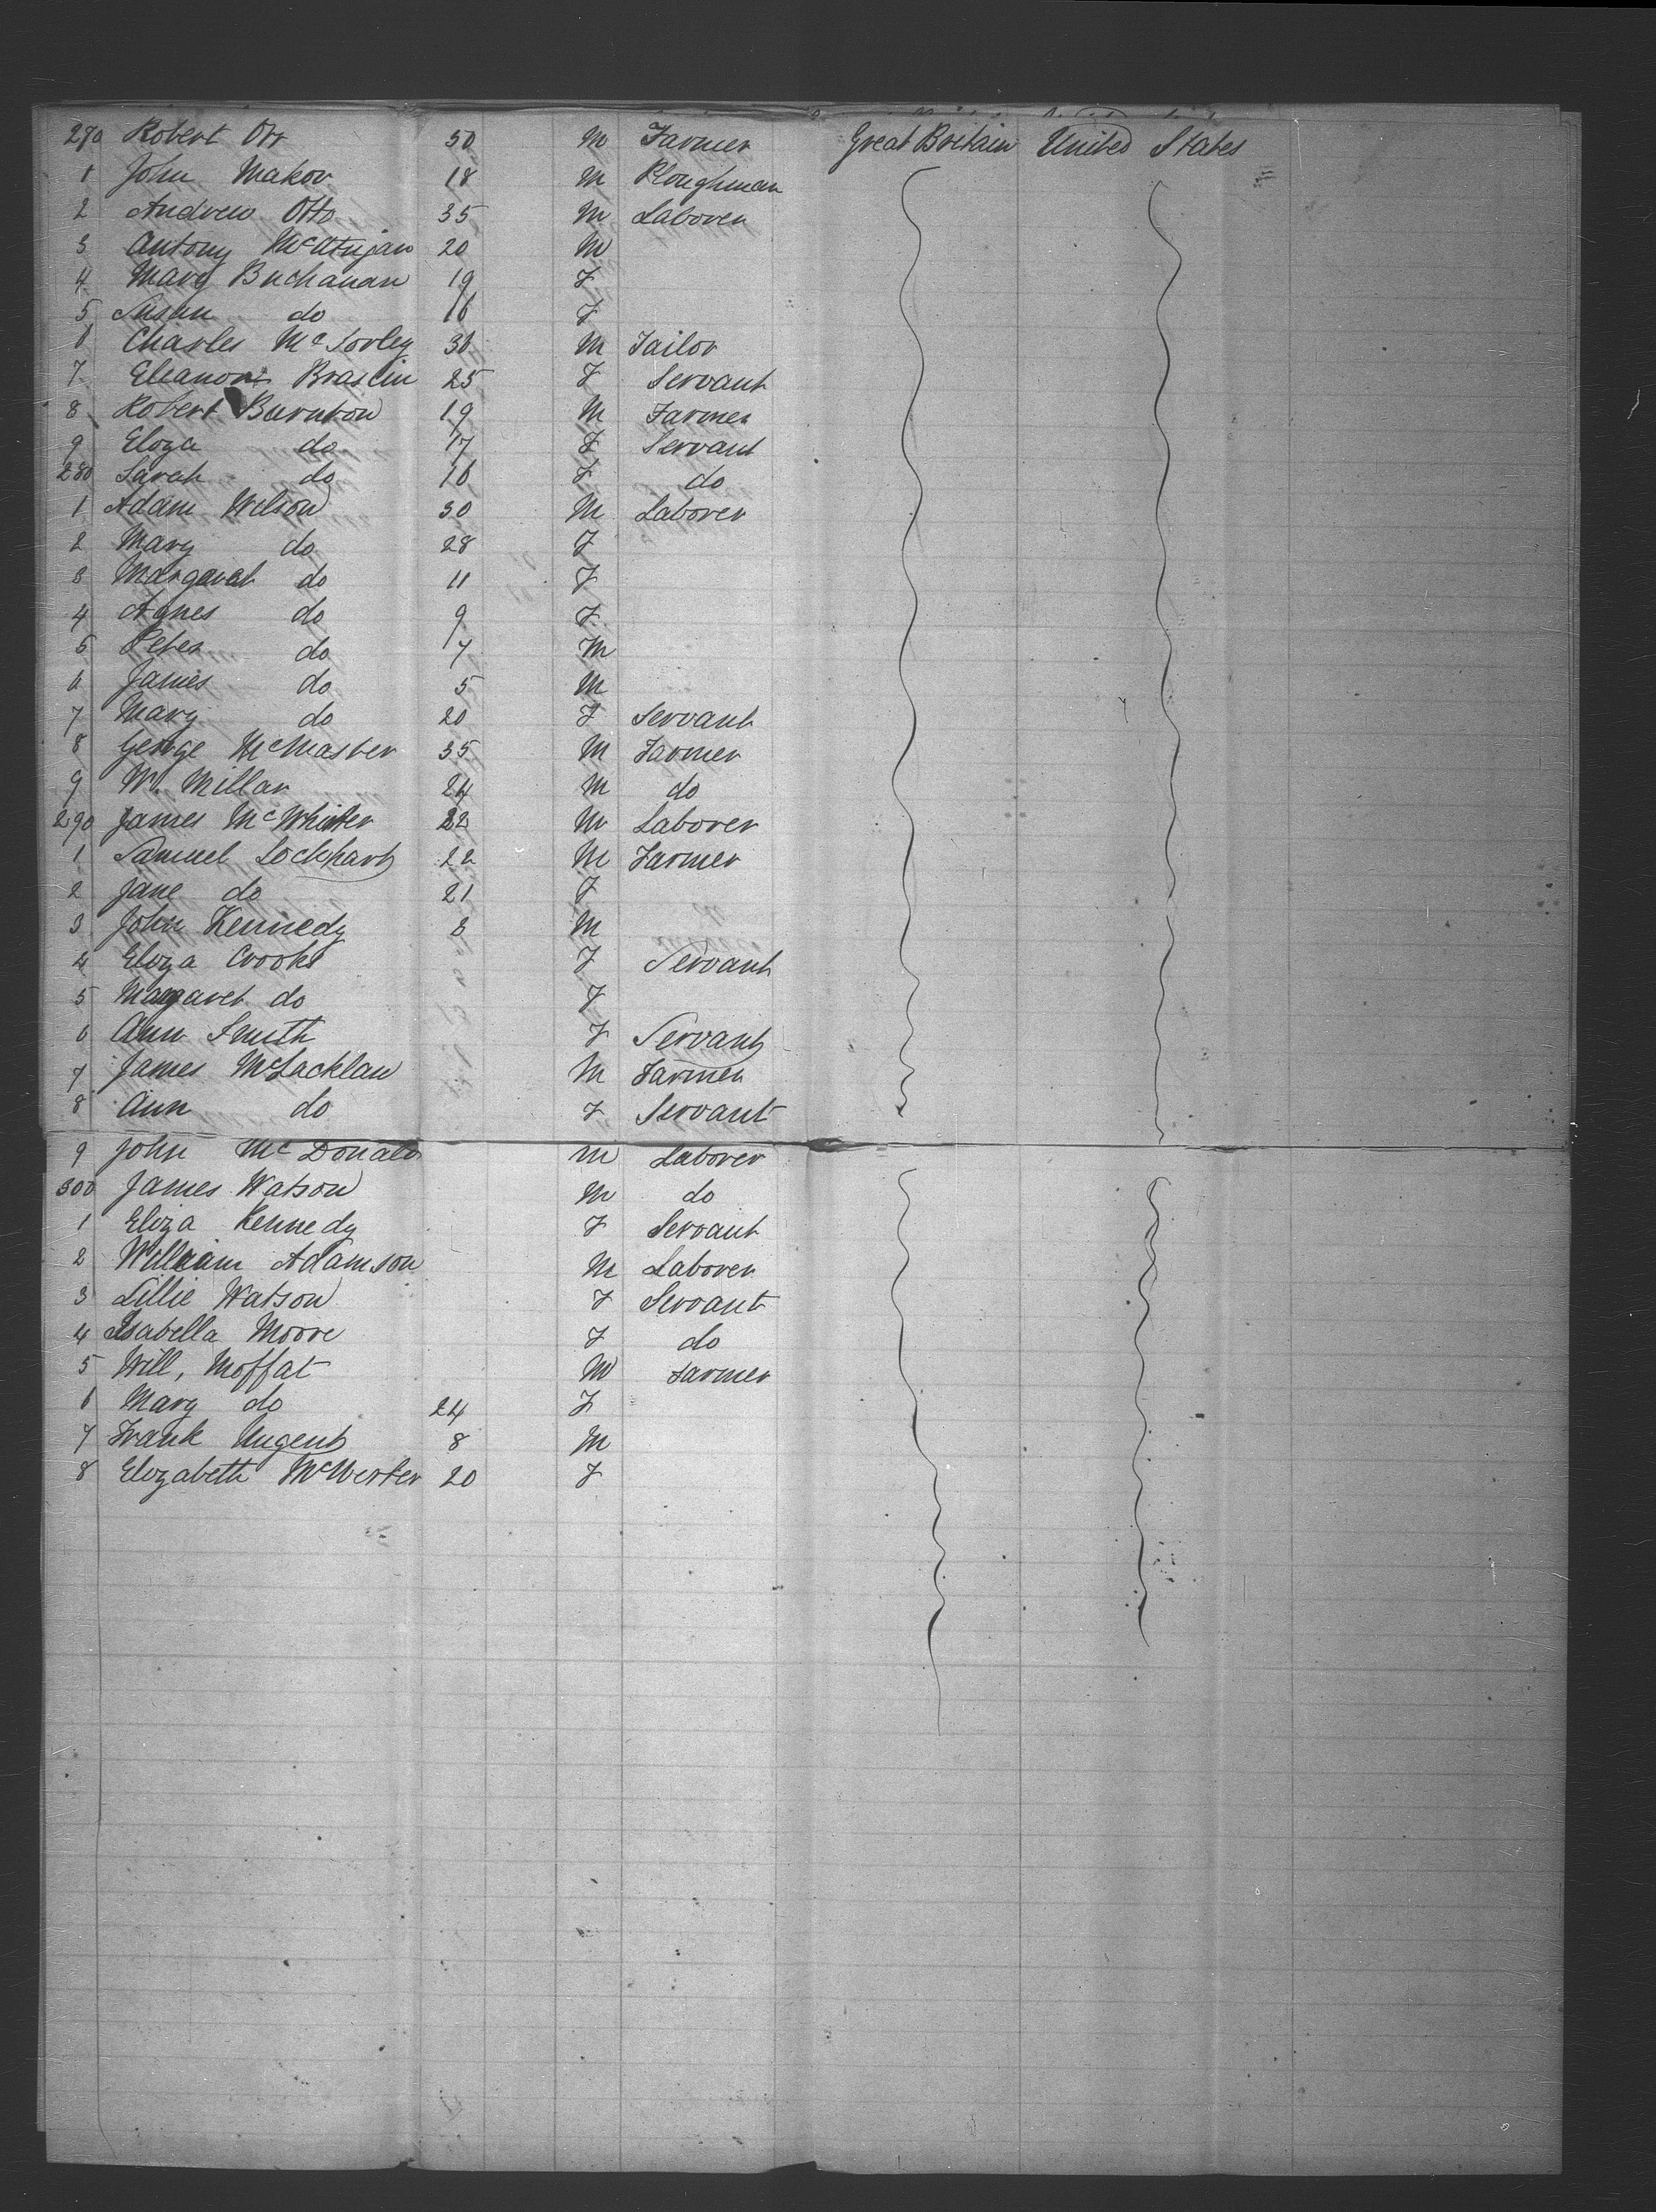 270 Robert Orr 50 M Farmer Great Britain United States
1 John Makov 18 M Ploughman
2 Andrew Otto 35 M Laborer
3 Antony 20 M
4 Mary Buchanan 19 F
5 Susan do 16 F
6 Charles McSorley 36 M Tailor
7 Eleanor Braslin 25 F Servant
8 Robert Burnton 19 M Farmer
9 Eliza do 17 F Servant
280 Sarah do 16 F do
1 Adam Wilson 30 M Laborer
2 Mary do 28 F
3 Margaret do 11 F
4 Agnes do 9 F
5 Peter do 7 M
6 James do 5 M
7 Mary do 20 F Servant
8 George McMaster 35 M Farmer
9 W. Millar 24 M do
290 James McWhirter 22 M Laborer
1 Samuel Lockhart 22 M Farmer
2 Jane do 21 F
3 John Kennedy 8 M
4 Eliza Crooks F Servant
5 Margaret do F
6 Ann Smith F Servant
7 James McLacklan M Farmer
8 Ann do F Servant
9 John McDonald M Laborer
300 James Watson M do
1 Eliza Kennedy F Servant
2 William Adamson M Laborer
3 Lillie Watson F Servant
4 Isabella Moore F do
5 Will, Moffat M Farmer
6 Mary do 24 F
7 Frank Nugent 8 M
8 Elizabeth McWerter 20 F